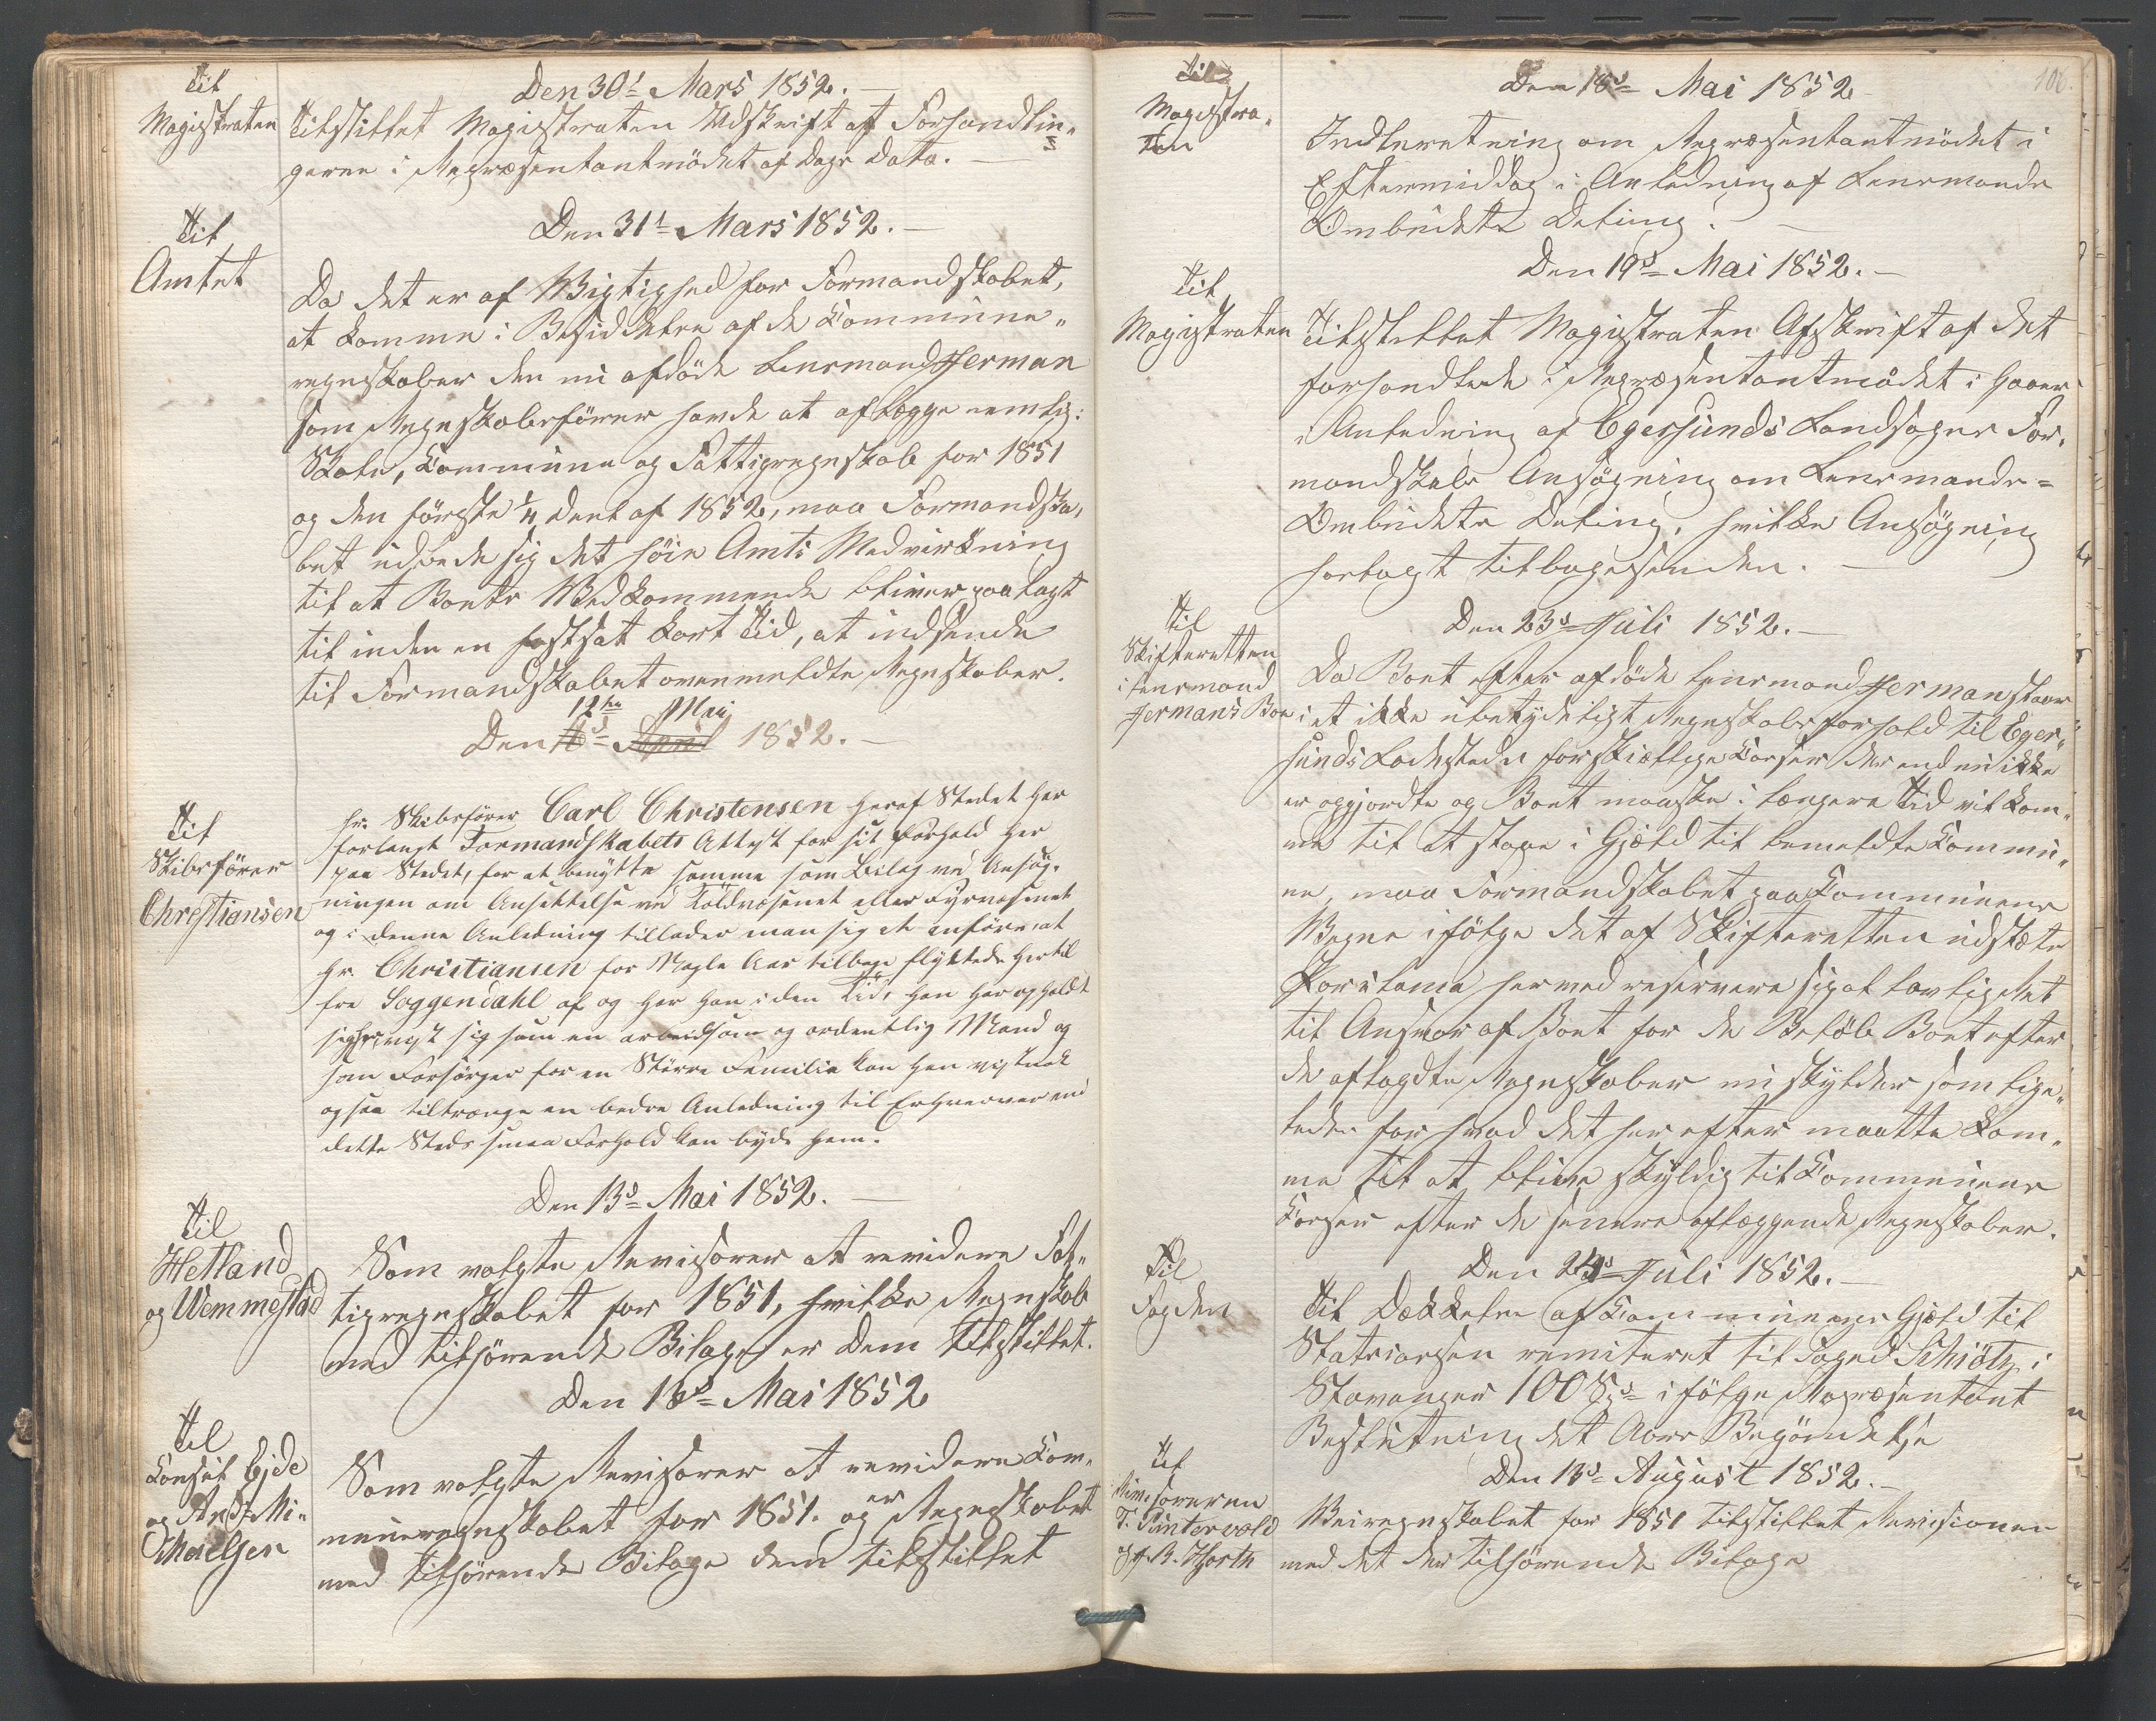 Til
Magistraten
Den 30t Mars 1852.
Tilstillet Magistraten Udskrift af Forhandlin„
gerne i Repræsentantmödet af Dags Dato.
Til
Amtet
Den 31t Mars 1852.
Da det er af Vigtighed for Formandskabet,
at komme i Besiddelse af de Kommune„
regnskaber den nu afdöde Lensmand Herman
som Regnskabsförer havde at aflægge nemlig:
Skole, Kommune og Fattigregnskab for 1851
og den förste 1/4 Deel af 1852, maa Formandska„
bet udbede sig det höie Amts Medvirkning
til at Boets Vedkommende bliver paalagt
til inden en fastsat kort Tid, at indsende
til Formandskabet ovenmeldte Regnskaber.
12te Mai
Den April 1852.
Til
Skibsförer
Christiansen
Hr. Skibsförer Carl Christensen heraf Stedet har
forlangt Formandskabets Attest for sit Forhold her
paa Stedet, for at benytte samme som Bilag ved Ansög„
ningen om Ansættelse ved Toldvæsenet eller Fyrvæsenet
og i denne Anledning tillader man sig at anföre, at
Hr. Christiansen for Nogle Aar tilbage flyttede hertil
fra Soggendahl af og har han i den Tid, han har opholdt
sig her, viist sig som en arbeidsom og ordentlig Mand og
som Forsörger for en Större Familie kan han vistnok
ogsaa tiltrænge en bedre Anledning til Erhverver end
dette Steds smaa Forhold kan byde ham.
Til
Hetland
og Wemmestad
Den 13d Mai 1852.
Som valgte Revisorer at revidere Fat„
tigregnskabet for 1851, hvilke Regnskab
med tilhörende Bilage er Dem tilstillet.
Til
Konsul Eide
og And. Mi„
chaelsen
Den 13d Mai 1852
Som valgte Revisorer at revidere Kom„
muneregnskabet for 1851. og er Regnskabet
med tilhörende Bilage dem tilstillet
106.
Til
Magistra„
ten
Den 18d Mai 1852
Indberetning om Repræsentantmödet i
Eftermiddag i Anledning af Lensmands
Ombudets Deling.
Til
Magistraten
Den 19d Mai 1852.
Tilstillet Magistraten Afskrift af det
forhandlede i Repræsentantmödet i Gaar
i Anledning af Egersunds Landsogns For„
mandskabs Ansögning om Lensmands=
Ombudets Deling, hvilke Ansögning
fortlagt tilbagesendes.
Til
Skifteretten
i Lensmand
Hermans Boe
Den 23d Juli 1852.
Da Boet efter afdöde Lensmand Herman staar
i et ikke ubetydeligt Regnskabsforhold til Eger„
sunds Ladesteds forskjellige Kasser der endnu ikke
er opgjordte og Boet maaske i længere Tid vil kom„
me til at staae i Gjæld til bemeldte Kommu„
ne, maa Formandskabet paa Kommunens
Vegne ifölge det af Skifteretten udstædte
Proclama herved reservere sig al lovlig Ret
til Ansvar af Boet for de Belöb Boet efter
de aflagdte Regnskaber nu skylder som lige„
ledes for hvad det herefter maatte kom„
me til at blive skyldig til Kommunens
Kasser efter de senere aflæggende Regnskaber.
Til
Fogden
Den 24d Juli 1852.
Til Dækkelse af Kommunens Gjæld til
Statscassen remitteret til Foged Schiötz i
Stavanger 100 Spd ifölge Repræsentant
Beslutning det Aars Begyndelse
Til
Revisorerne
T. Puntervold
og H. B. Hjorth
Den 13d August 1852.
Veiregnskabet for 1851 tilstillet Revisionen
med det der tilhörende Bilage